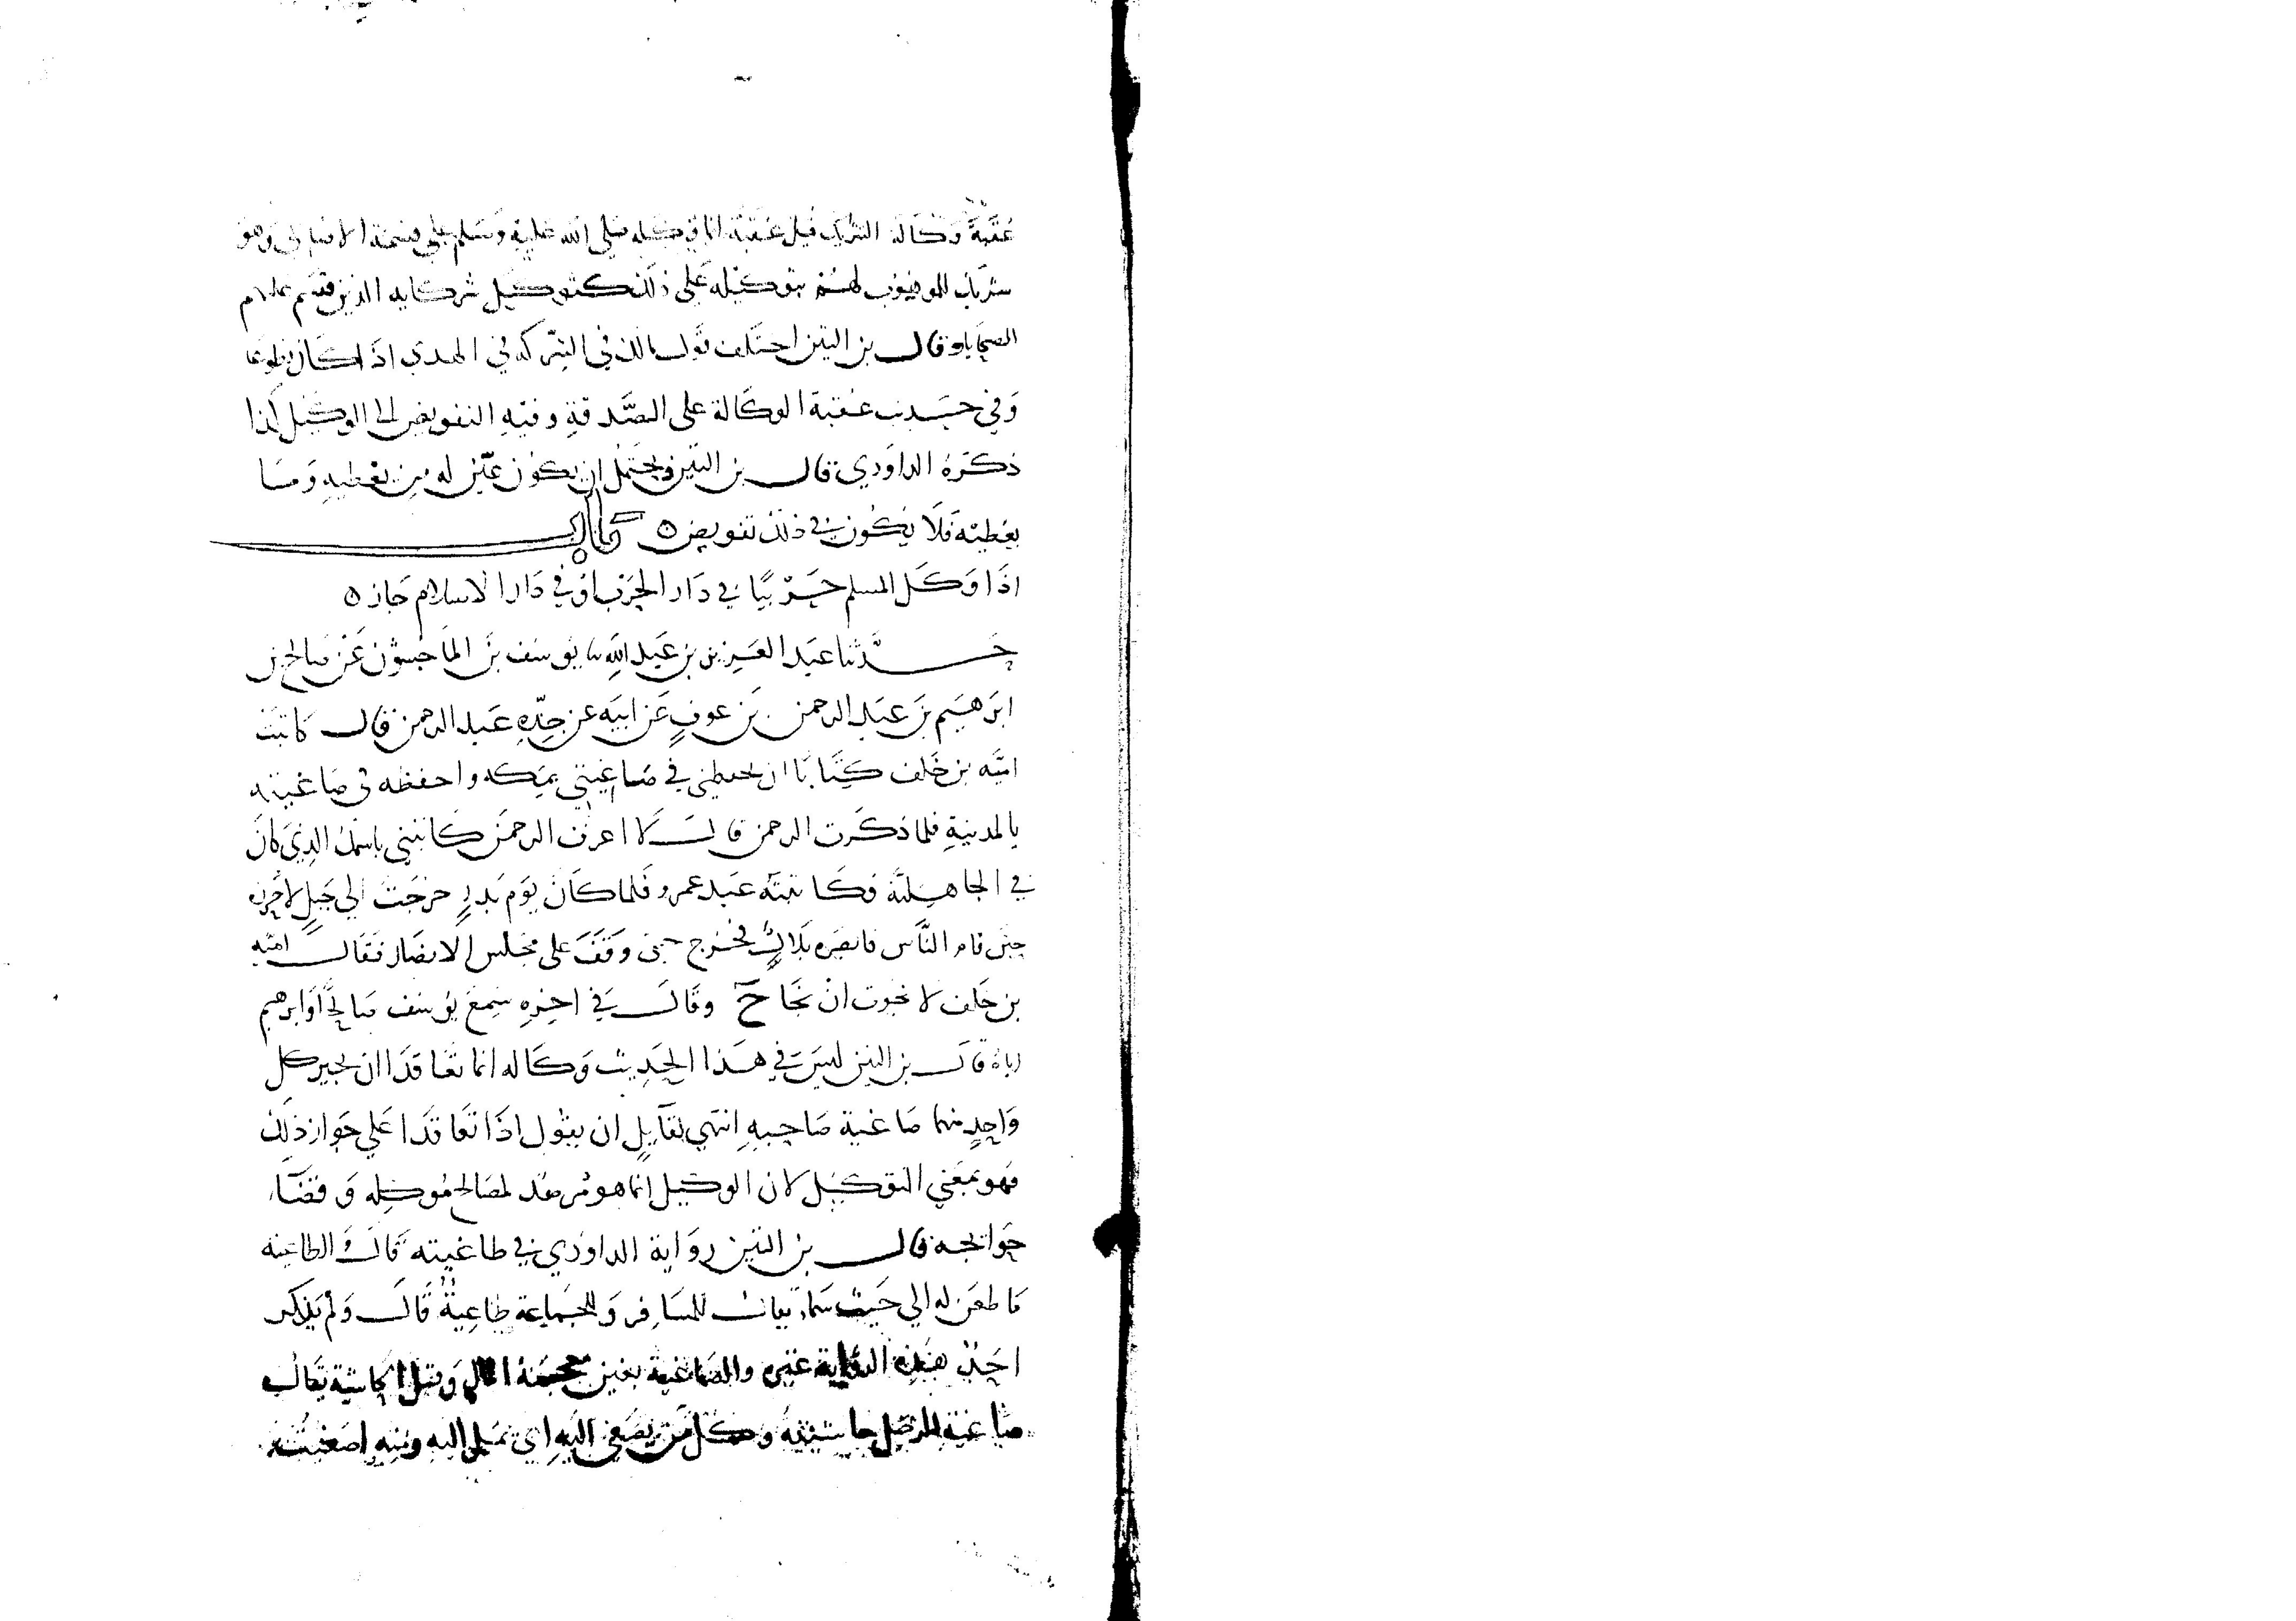 عقبة وكالة الشريك قيل عقبة انما وكيله صلى الله عليه وسلم على قسمة الاضاحي وهو
شريك للموهوب لهم بتوكيله على ذلك كتوكيل شركايه الذين قسم عليهم
الضحايا وقال بن التين اختلف قول مالك في الشركه في الهدي اذا كان تطوعا
وفي حديث عقبة الوكالة على الصدقة وفيه التفويض الى الوكيل كذا
ذكره الداودي قال بن التين ويحتمل ان يكون عين له من يعطيه وما
يعطيه فلا يكون في ذلك تفويض ه باب
اذا وكل المسلم حربيا في دار الحرب او في دار الاسلام جاز ه
حدثنا عبد العزيز بن عبد الله ثنا يوسف بن الماجشون عن صالح بن
ابرهيم بن عبد الرحمن بن عوف عن ابيه عن جده عبد الرحمن قال كاتبت
اميه بن خلف كتابا ان يحفظني في صاغيتي بمكه واحفظه في صاغيته
بالمدينة فلما ذكرت الرحمن قال لا اعرف الرحمن كاتبني باسمك الذي كان
في الجاهلية فكاتبته عبد عمرو فلما كان يوم بدر خرجت الى جبل لاحرزه
حين نام الناس فابصره بلال فخرج حتى وقف على مجلس الانصار فقال اميه
بن خلف لا نجوت ان نجا ح وقال في اخره سمع يوسف صالحا وابرهيم
اباه قال بن التين ليس في هذا الحديث وكاله انما تعاقدا ان يجير كل
واحد منهما صاغية صاحبه انتهى لقايل ان يقول اذا تعاقدا على جواز ذلك
فهو بمعني التوكيل لان الوكيل انما هو مرصد لمصالح موكله وقضاء
حوايجه قال بن التين رواية الداودي في ظاعنته قال والظاعنه
ما ظعن له الي حيث سار يقال للمسافر وللجماعة ظاعنة قال ولم يذكر
احد هذه الرواية غيره والصاغية بغين معجمة المال وقيل الحاشية يقال
صاغية الرجل حاشيته وكل من يصغي اليه اي يميل اليه ومنه اصغيت